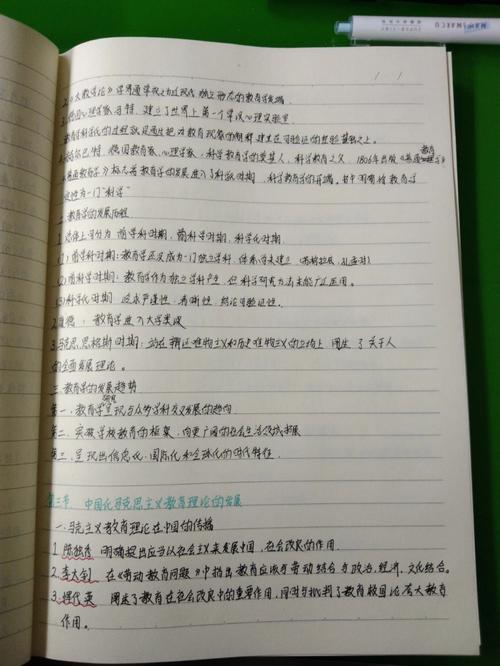 2.《大教学论》学界通常视之为近现代独立形态的教育学开端
3.德国心理学家冯特，建立了世界上第一个学校心理实验室
教育学科学化的过程就是通过把对教育现象的解释建立在可验证的经验基础之上。
赫尔巴特，德国教育家、心理学家，科学教育学的奠基人，科学教育之父，1806年出版《普通教育学》
《普通教育学》标志着教育学的发展进入了科学时期，科学教育学的开端。
成为一门“科学”
二、教育学的发展历程
1.总体上可分为前学科时期，前科学时期，科学化时期
(1)前学科时期：教育学还没成为一门独立学科，体系尚未建立（苏格拉底，孔孟时）
(2)前科学时期：教育学作为独立学科产生，但科学研究方法未能广泛应用。
(3)科学化时期 追求严谨性、客观性、结论可验证性。
2.康德：教育学进入大学课堂
3.马克思、恩格斯时期：站在辩证唯物主义和历史唯物主义的立场上，阐述了关于人
的全面发展理论。
三、教育学的发展趋势
第一、教育学研究呈现与众多学科交叉发展的趋向
第二、突破学校教育的框架，向更广阔的社会生活及领域扩展
第三、呈现出信息化、国际化和全球化的时代特征
第三节 中国化马克思主义教育理论的发展
一、马克思主义教育理论在中国的传播
1.陈独秀 明确提出应当以社会主义来发展中国，社会改良的作用
2.李大钊 在《劳动教育问题》中指出教育应该与劳动结合与政治、经济、文化结合。
3.恽代英 阐述了教育在社会改良中的重要作用，同时与批判了教育救国论夸大教育
作用。